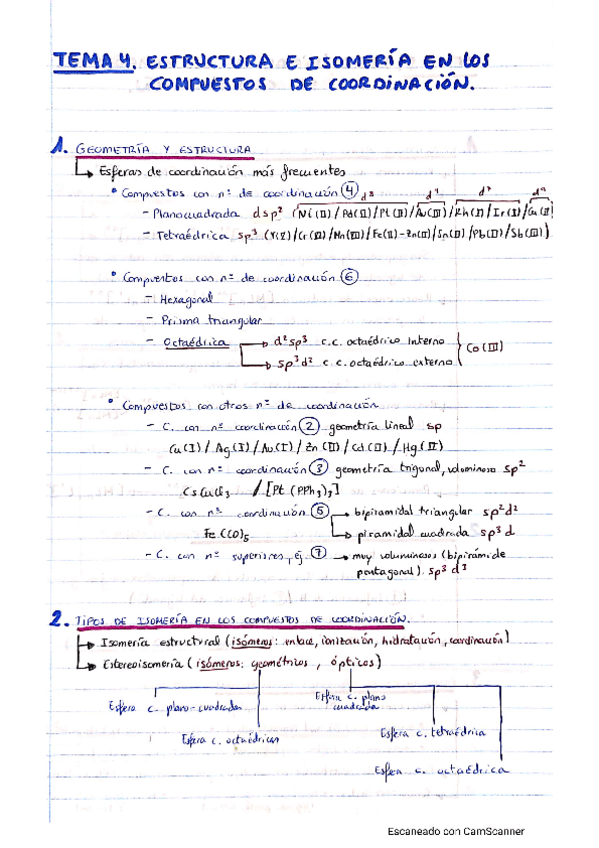 TEMA 4. ESTRUCTURA E ISOMERÍA EN LOS
COMPUESTOS DE COORDINACIÓN.
1. GEOMETRÍA Y ESTRUCTURA
Esferas de coordinación más frecuentes
• Compuestos con nº de coordinación 4
d⁸ d⁹
- Planocuadrada dsp² (Ni(II)/Pd(II)/Pt(II)/Au(III)/Rh(I)/Ir(I)/Cu(II)
- Tetraédrica sp³ (V(V)/Cr(VI)/Mn(VII)/Fe(II)-Zn(II)/Sn(II)/Pb(II)/Sb(III))
• Compuestos con nº de coordinación 6
- Hexagonal
- Prisma triangular
- Octaédrica → d²sp³ c.c. octaédrico interno
→ sp³d² c.c. octaédrico externo
Co(III)
• Compuestos con otros nº de coordinación
- C. con nº coordinación 2 geometría lineal sp
Cu(I)/Ag(I)/Au(I)/Zn(II)/Cd(II)/Hg(II)
- C. con nº coordinación 3 geometría trigonal, voluminoso sp²
CsCuCl₃ / [Pt(PPh₃)₃]
- C. con nº coordinación 5 → bipiramidal triangular sp²d²
Fe(CO)₅ → piramidal cuadrada sp³d
- C. con nº superiores, ej 7 → muy voluminosos (bipirámide
pentagonal). sp³d³
2. TIPOS DE ISOMERÍA EN LOS COMPUESTOS DE COORDINACIÓN.
Isomería estructural (isómeros: enlace, ionización, hidratación, coordinación)
Estereoisomería (isómeros: geométricos, ópticos)
Esfera c. plano-cuadrada
Esfera c. octaédrica
Esfera c. plano
cuadrada
Esfera c. tetraédrica
Esfera c. octaédrica
Escaneado con CamScanner